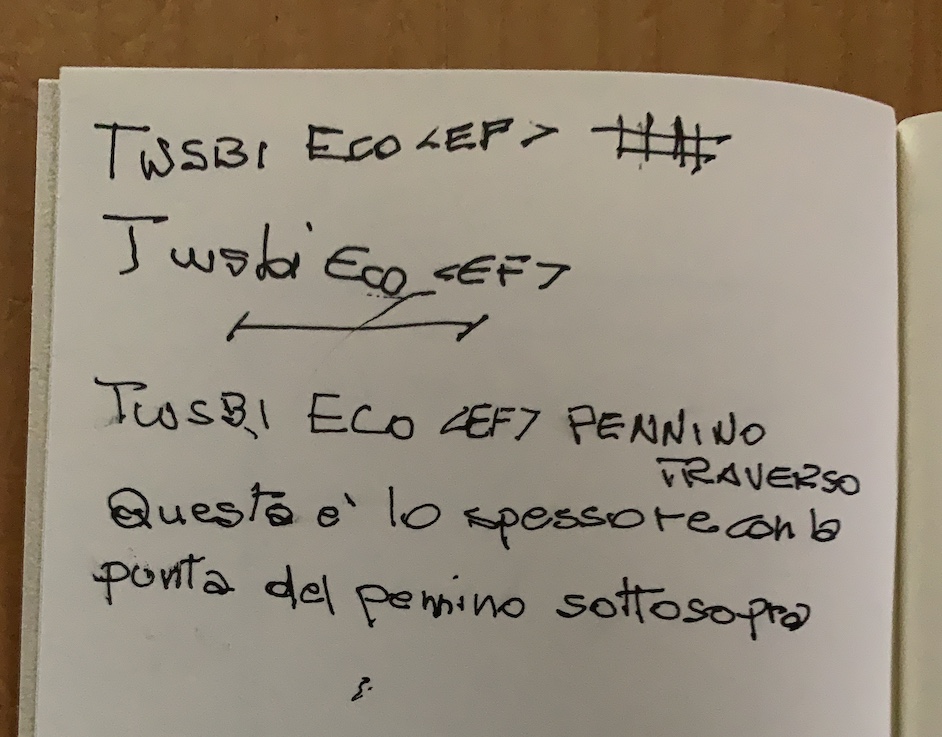 TWSBI ECO <EF>
Twsbi Eco <EF>
TWSBI ECO <EF> PENNINO
TRAVERSO
Questo è lo spessore con la
punta del pennino sottosopra